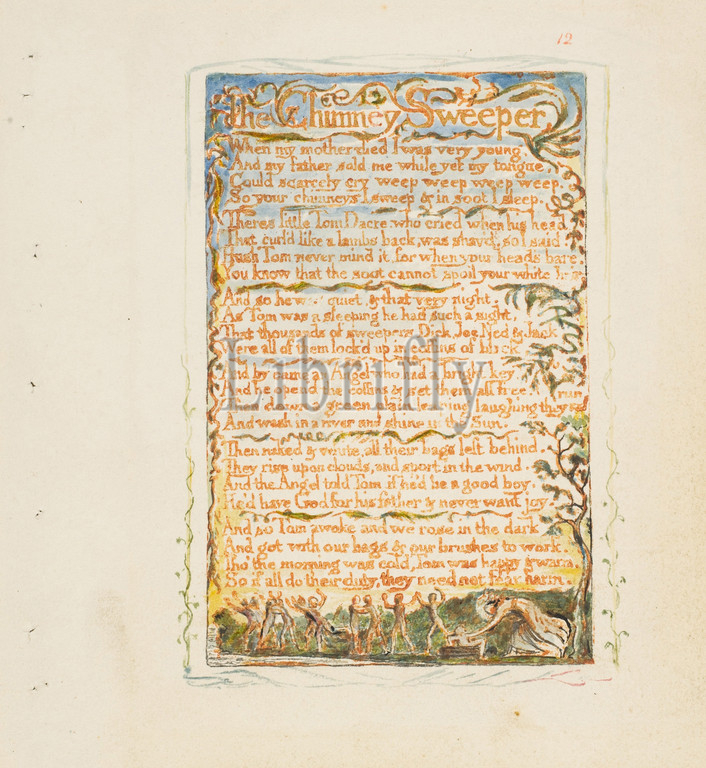 12
The Chimney Sweeper
When my mother died I was very young,
And my father sold me while yet my tongue,
Could scarcely cry weep weep weep weep.
So your chimneys I sweep & in soot I sleep.
Theres little Tom Dacre. who cried when his head
That curl'd like a lambs back, was shav'd, so I said
Hush Tom never mind it, for when your heads bare,
You know that the soot cannot spoil your white
And so he was quiet, & that very night,
As Tom was a sleeping he had such a sight,
That thousands of sweepers Dick, Joe, Ned & Jack
Were all of them lock'd up in coffins of black
And by came an Angel who had a bright key
And he open'd the coffins & set them all free.
down a green plain leaping laughing they run
And wash in a river and shine in the Sun.
Then naked & white, all their bags left behind.
They rise upon clouds, and sport in the wind
And the Angel told Tom if he'd be a good boy,
He'd have God for his father & never want joy.
And so Tom awoke and we rose in the dark
And got with our bags & our brushes to work.
Tho' the morning was cold, Tom was happy & warm,
So if all do their duty, they need not fear harm.
Librifly